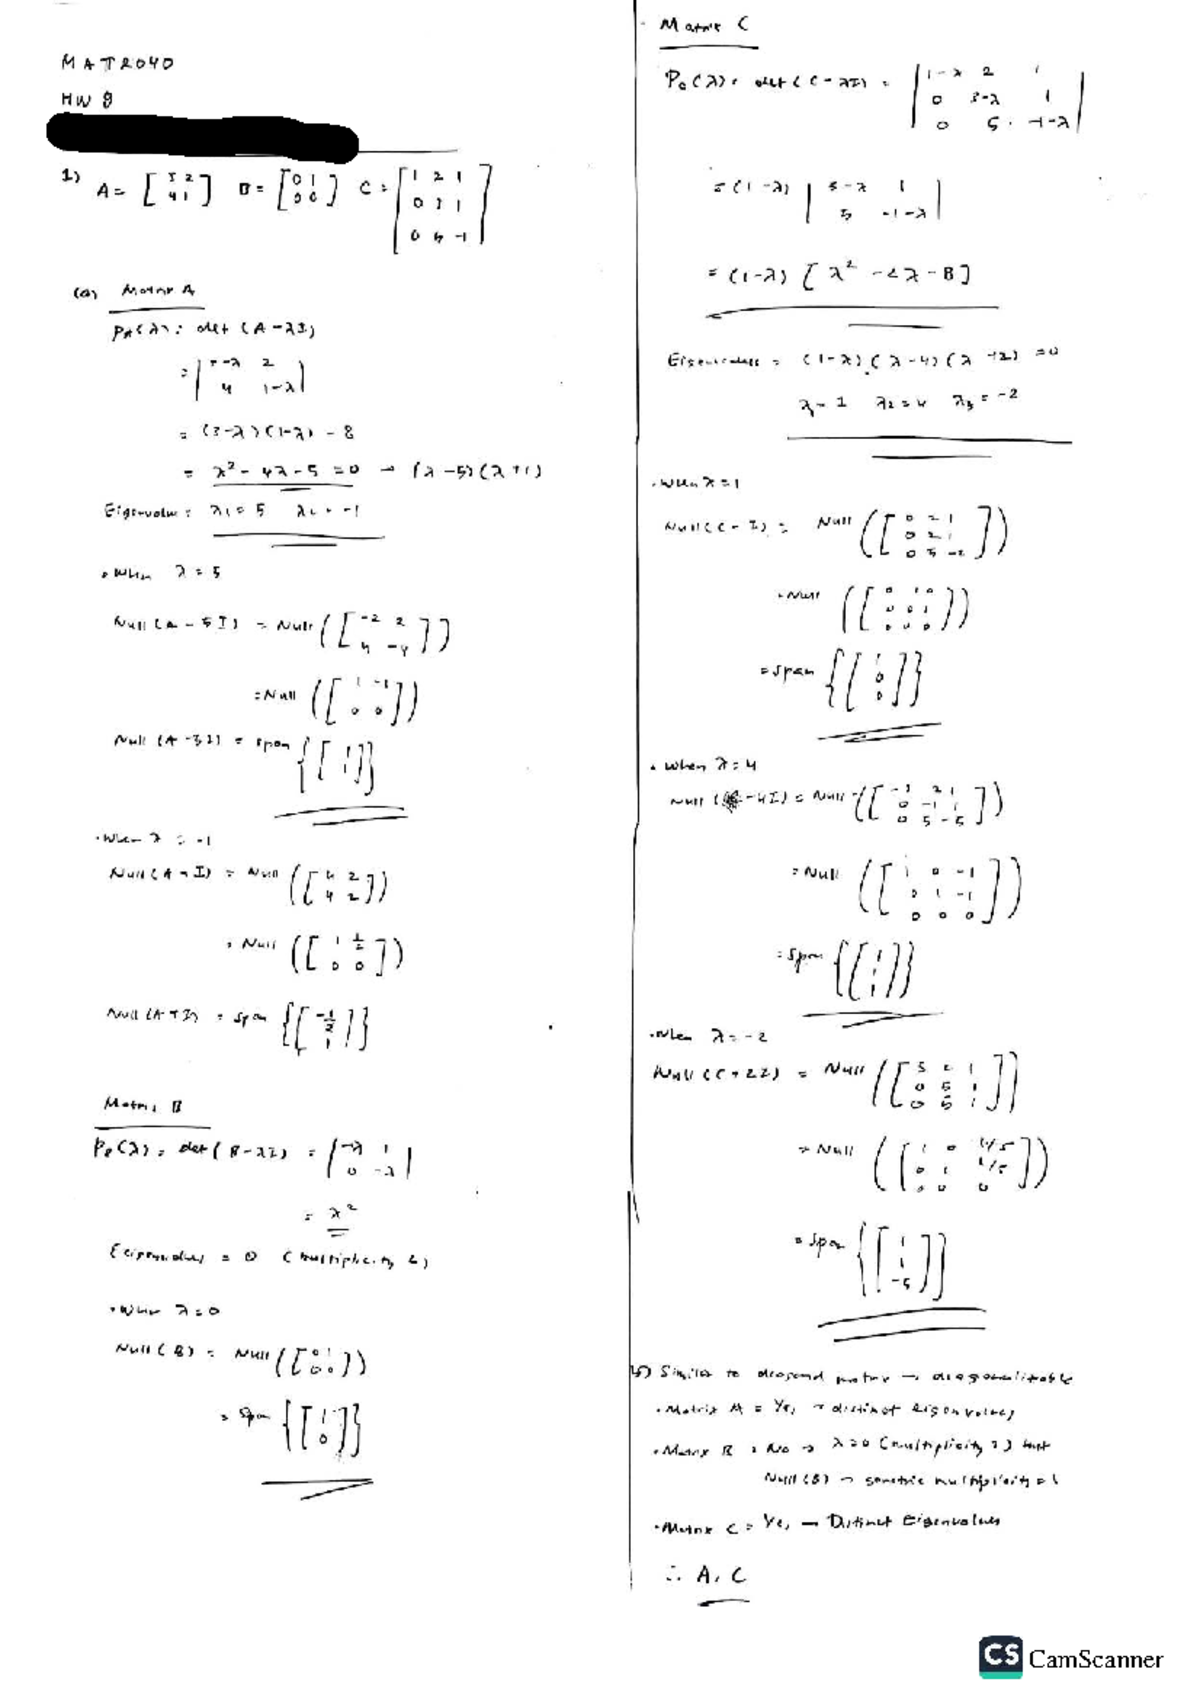 MAT2040
HW 8
1) A = [3 2 4 1] B = [0 1 0 0] C = [1 2 1 0 3 1 0 5 -1]
(a) Matrix A
P_A(λ) = det(A - λI)
= | 3-λ 2 4 1-λ |
= (3-λ)(1-λ) - 8
= λ² - 4λ - 5 = 0 → (λ-5)(λ+1)
Eigenvalue: λ₁ = 5 λ₂ = -1
• When λ = 5
Null(A - 5I) = Null([-2 2 4 -4])
= Null([1 -1 0 0])
Null(A - 5I) = span{[1 1]}
• When λ = -1
Null(A + I) = Null([4 2 4 2])
= Null([1 1/2 0 0])
Null(A + I) = span{[-1/2 1]}
Matrix B
P_B(λ) = det(B - λI) = | -λ 1 0 -λ |
= λ²
Eigenvalues = 0 (multiplicity 2)
• When λ = 0
Null(B) = Null([0 1 0 0])
= Span{[1 0]}
Matrix C
P_C(λ) = det(C - λI) = | 1-λ 2 1 0 3-λ 1 0 5 -1-λ |
= (1-λ) | 3-λ 1 5 -1-λ |
= (1-λ)[λ² - 2λ - 8]
Eigenvalues = (1-λ)(λ-4)(λ+2) = 0
λ₁ = 1 λ₂ = 4 λ₃ = -2
• When λ = 1
Null(C - I) = Null([0 2 1 0 2 1 0 5 -2])
= Null([0 1 0 0 0 1 0 0 0])
= span{[1 0 0]}
• When λ = 4
Null( - 4I) = Null([-3 2 1 0 -1 1 0 5 -5])
= Null([1 0 -1 0 1 -1 0 0 0])
= Span{[1 1 1]}
• When λ = -2
Null(C + 2I) = Null([3 2 1 0 5 1 0 5 1])
= Null([1 0 1/5 0 1 1/5 0 0 0])
= Span{[1 1 -5]}
b) Similar to diagonal matrix → diagonalizable
• Matrix A = Yes → distinct eigenvalues
• Matrix B = No → λ=0 (multiplicity 2) but
Null(B) → geometric multiplicity = 1
• Matrix C = Yes → Distinct Eigenvalues
∴ A, C
CS CamScanner